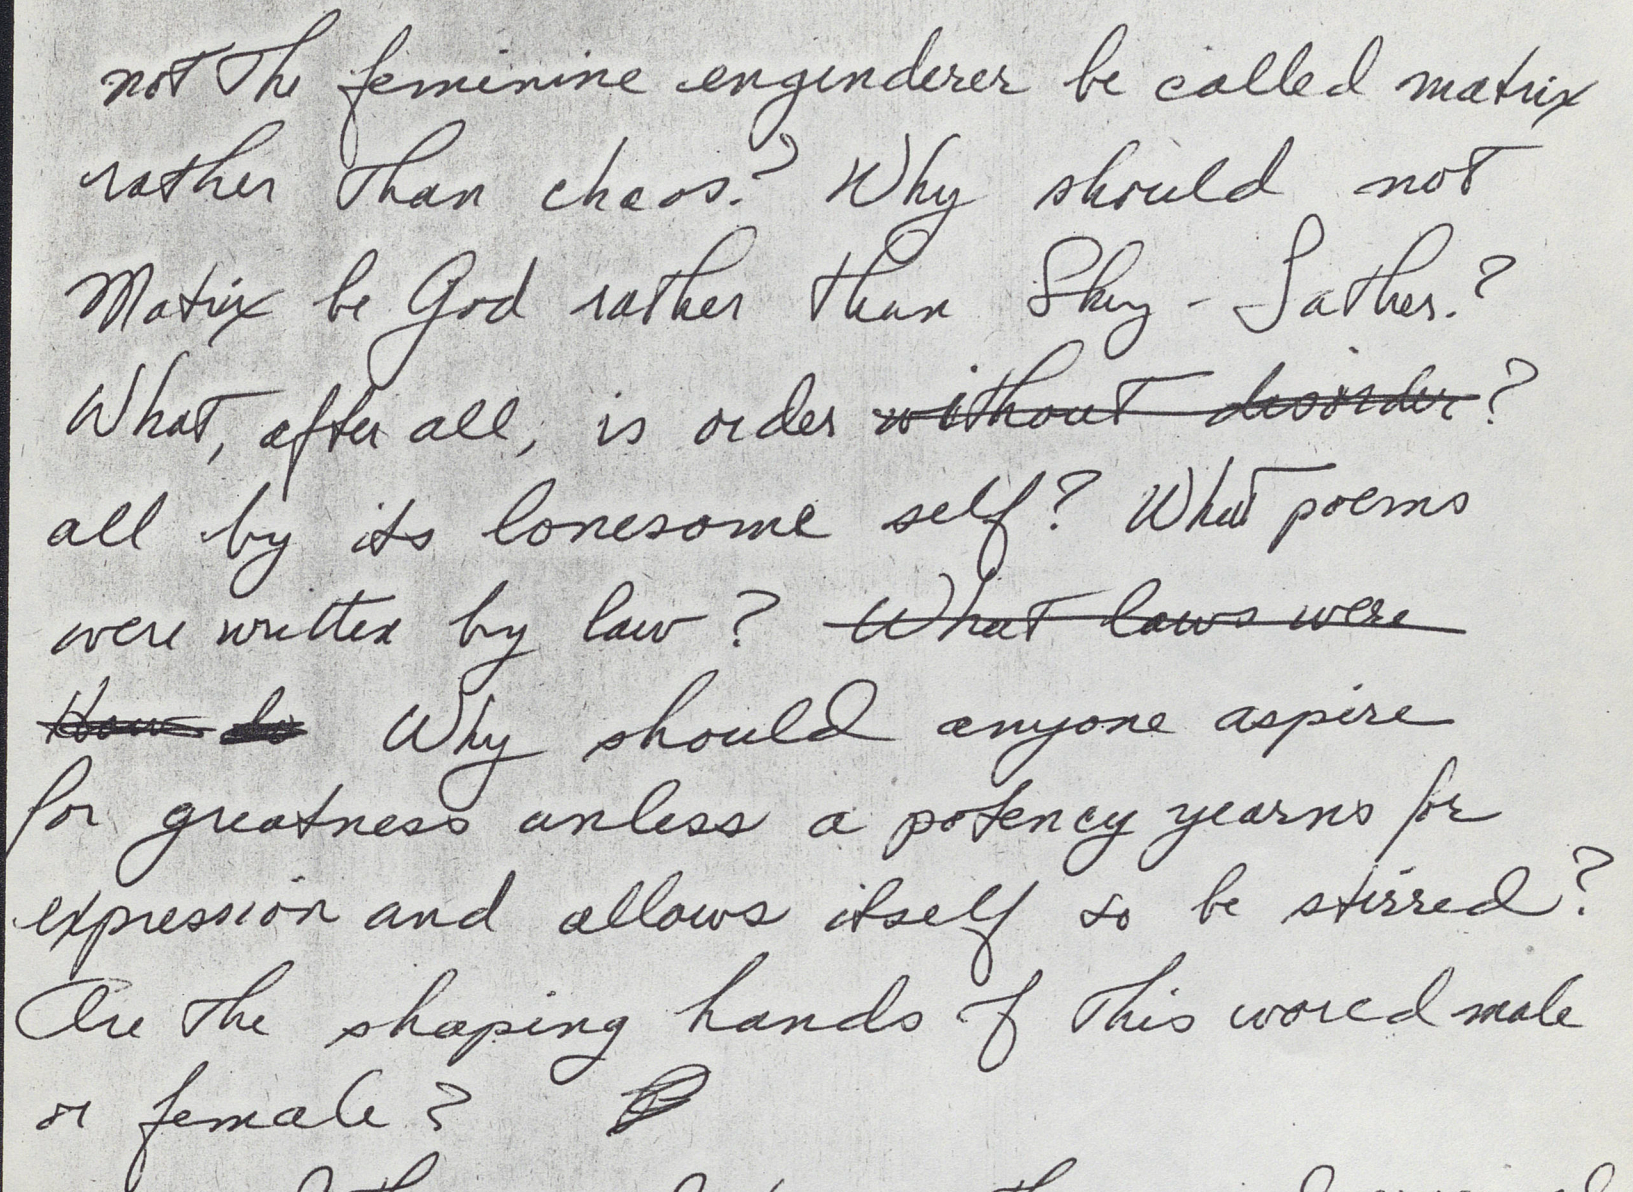 not the feminine engenderer be called matrix
rather than chaos? Why should not
Matrix be God rather than Sky-Father?
What, after all, is order without disorder?
all by its lonesome self? What poems
were written by law? What laws were
How do Why should anyone aspire
for greatness unless a potency yearns for
expression and allows itself to be stirred?
Are the shaping hands of this world male
or female?